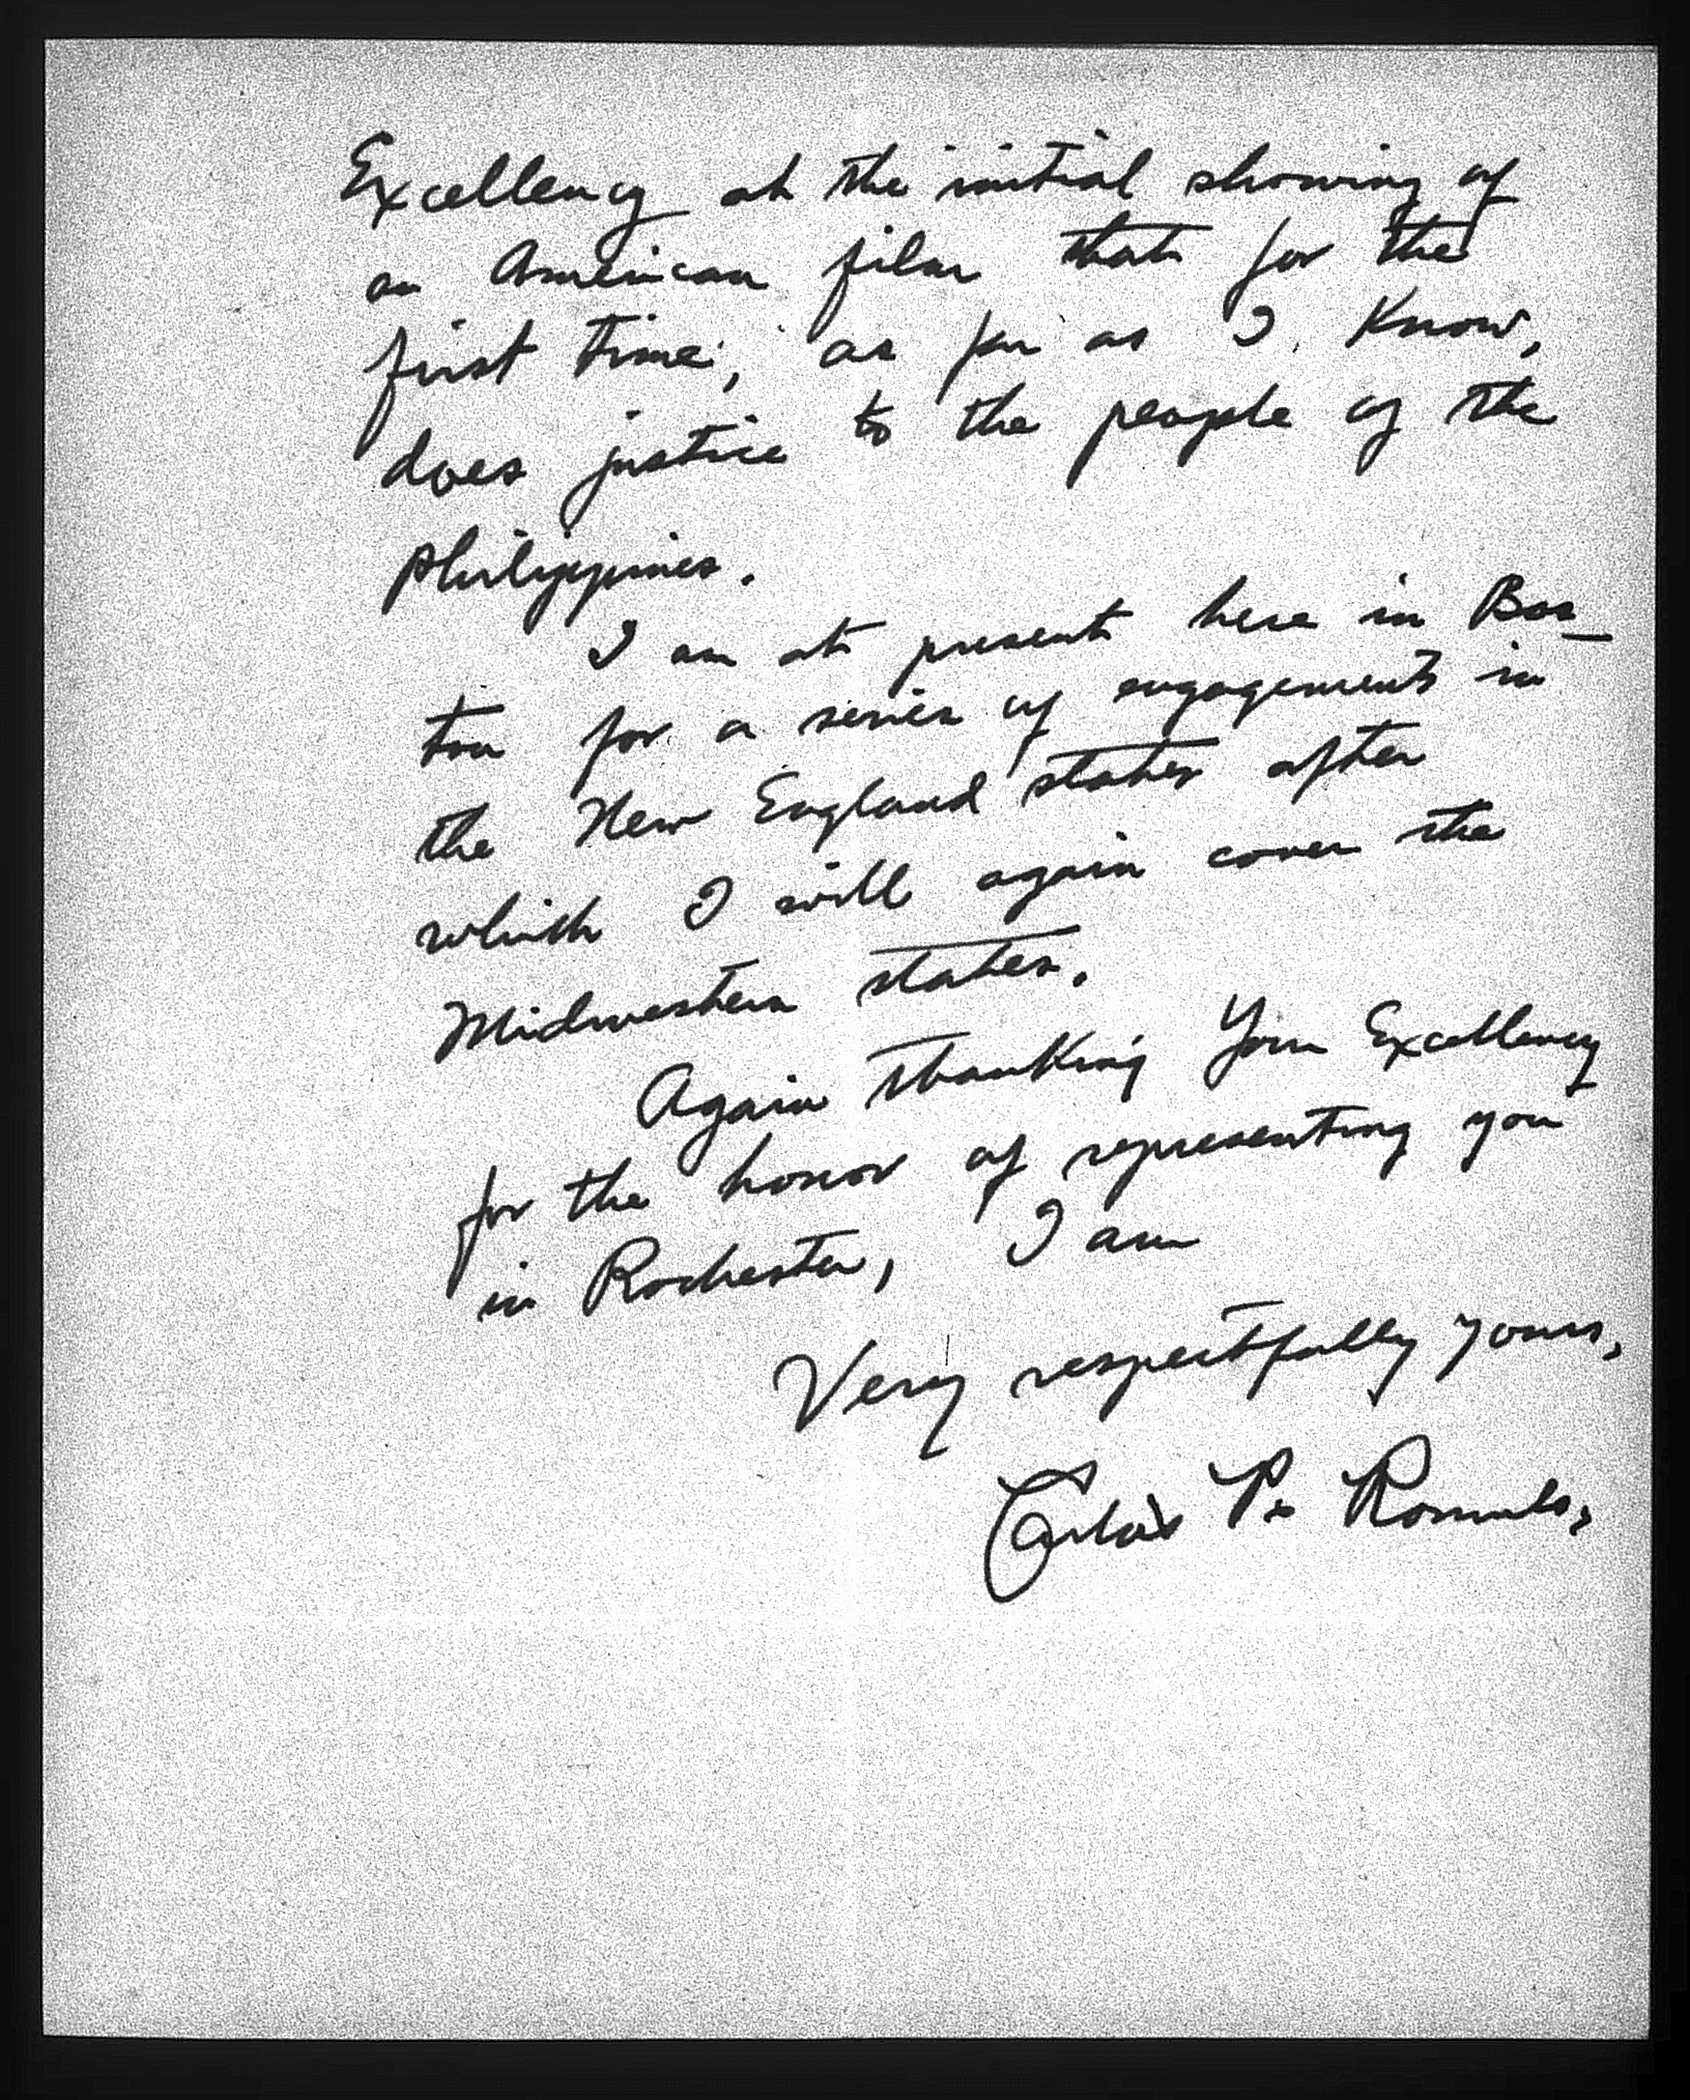 Excellency at the initial showing of
an American film that for the
first time, as far as I know,
does justice to the people of the
Philippines.
I am at present here in Bos-
ton for a series of engagements in
the New England states after
which I will again cover the
Midwestern states.
Again thanking Your Excellency
for the honor of representing you
in Rochester, I am
Very respectfully yours,
Carlos P. Romulo.